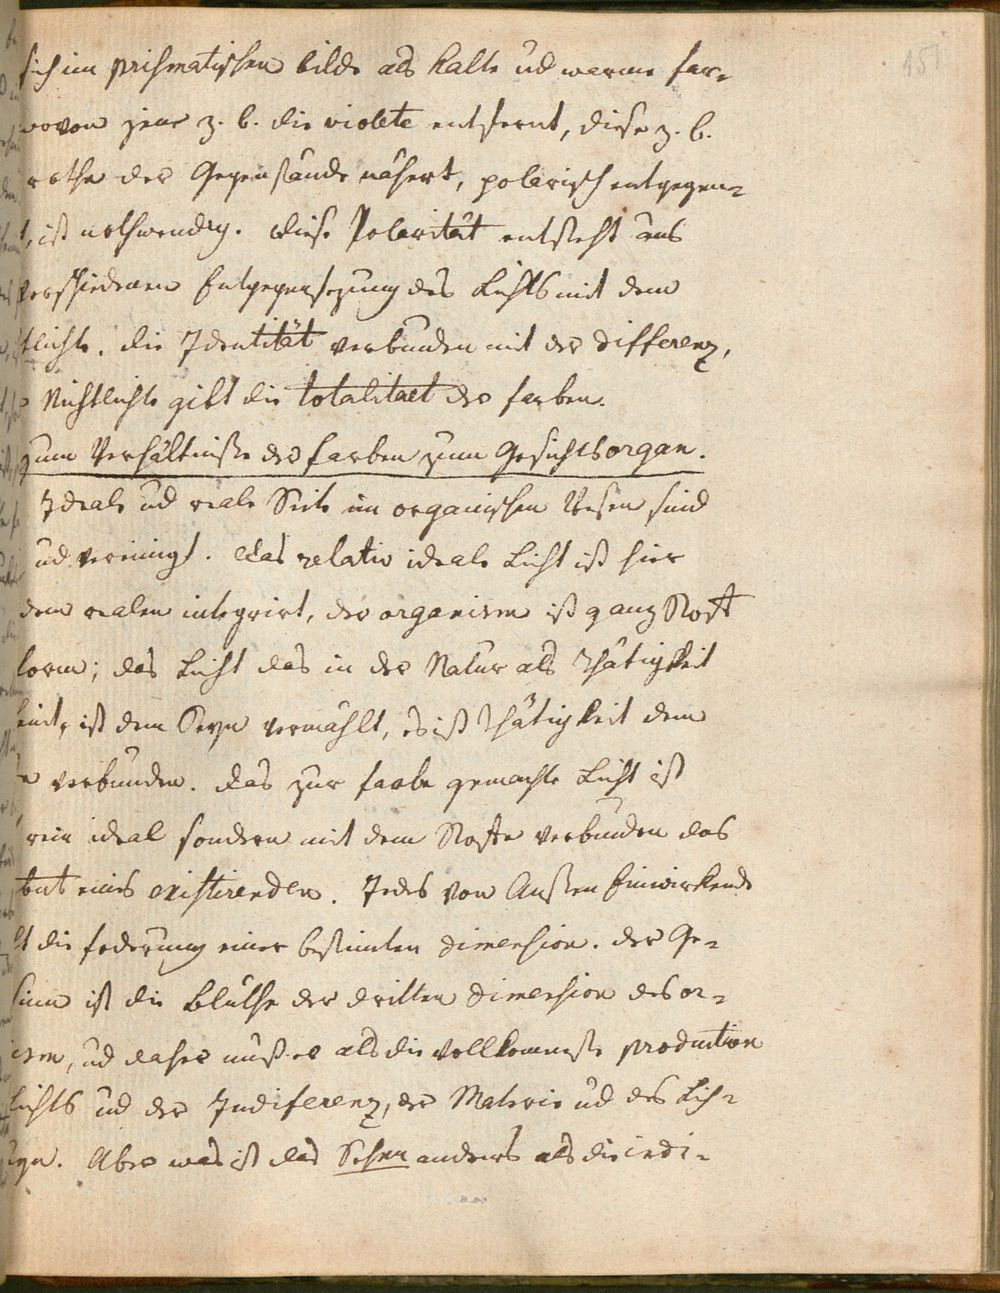 151
sich im prismatischen bilde als kalte ud warme far-
wovon jene z. b. die violete entfernt, diese z. b.
rothe der Gegenstände nähert, polarisch entgegen-
, ist nothwendig. diese Polarität entsteht aus
verschiedenen Entgegensezung des Lichts mit dem
tlichte. die Identität verbunden mit der differenz,
Nichtlichte gibt die totalitaet der farben.
zum Verhältnisse der farben zum Gesichtsorgan.
Ideale ud reale Seite im organischen Wesen sind
ud vereinigt. das relativ ideale Licht ist hier
dem realen integrirt, der organism ist ganz Stoff
form; das Licht das in der Natur als Thätigkeit
eint, ist dem Seyn vermählt, es ist Thätigkeit dem
verbunden. das zur farbe gemachte Licht ist
rein ideal sondern mit dem Stoffe verbunden das
but eines existirenden. Jedes von Außen Einwirkende
t die foderung einer bestimten dimension. der Ge-
sinn ist die Blüthe der dritten dimension des or-
ism, ud daher muß er als die vollkommenste production
lichts ud der Indiferenz, der Materie ud des Lich-
eyn. Aber was ist das Sehen anders als die indi-